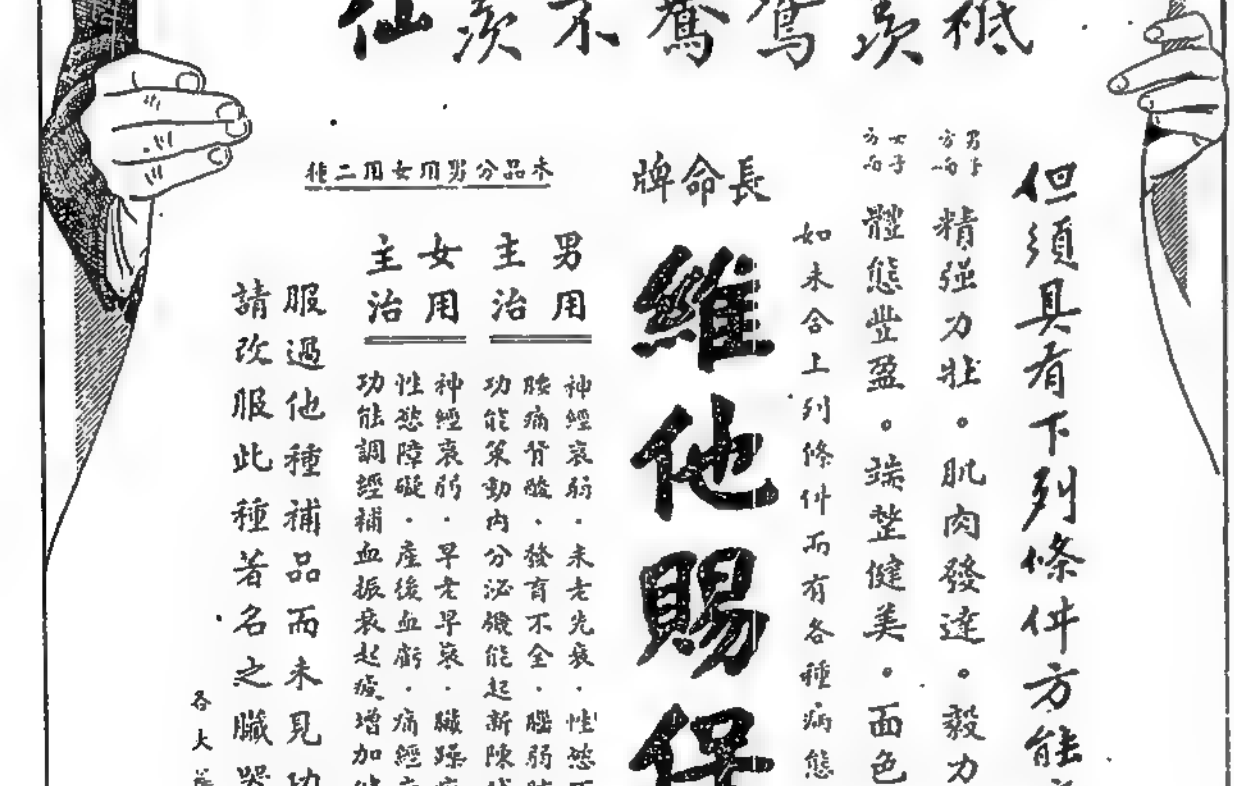 祗羨鴛鴦不羨仙
但須具有下列條件方能
男子方面 精强力壯。肌肉發達。毅力
女子方面 體態豐盈。端整健美。面色
如未合上列條件而有各種病態
長命牌
維他賜保
本品分男用女用二種
男用主治
神經衰弱．未老先衰．性慾
腰痛背酸．發育不全．腦弱
功能策動內分泌機能起新陳
女用主治
神經衰弱．早老早衰．臟躁
性慾障礙．產後血虧．痛經
功能調經補血振衰起疲增加
服過他種補品而未見功
請改服此種著名之臟器
各大